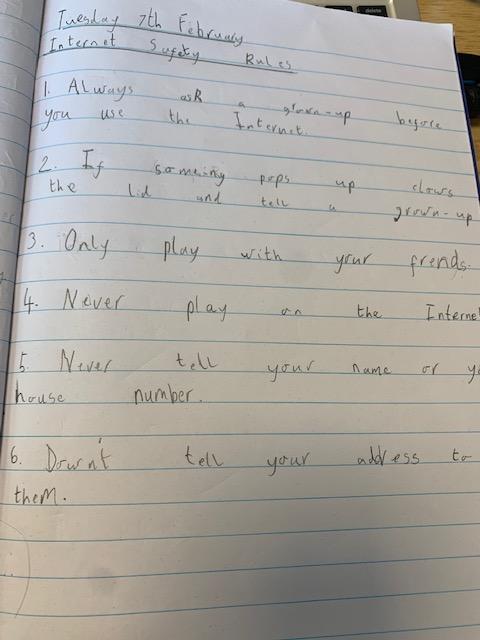 Tuesday 7th February
Internet Sufety Rules
1. Always asR a grown-up before
you use the Internet.
2. If someing pops up clows
the lid and tell a grown-up
3. Only play with your frends.
4. Never play on the Interne
5. Never tell your name or y
house number.
6. Down't tell your address to
them.
delete